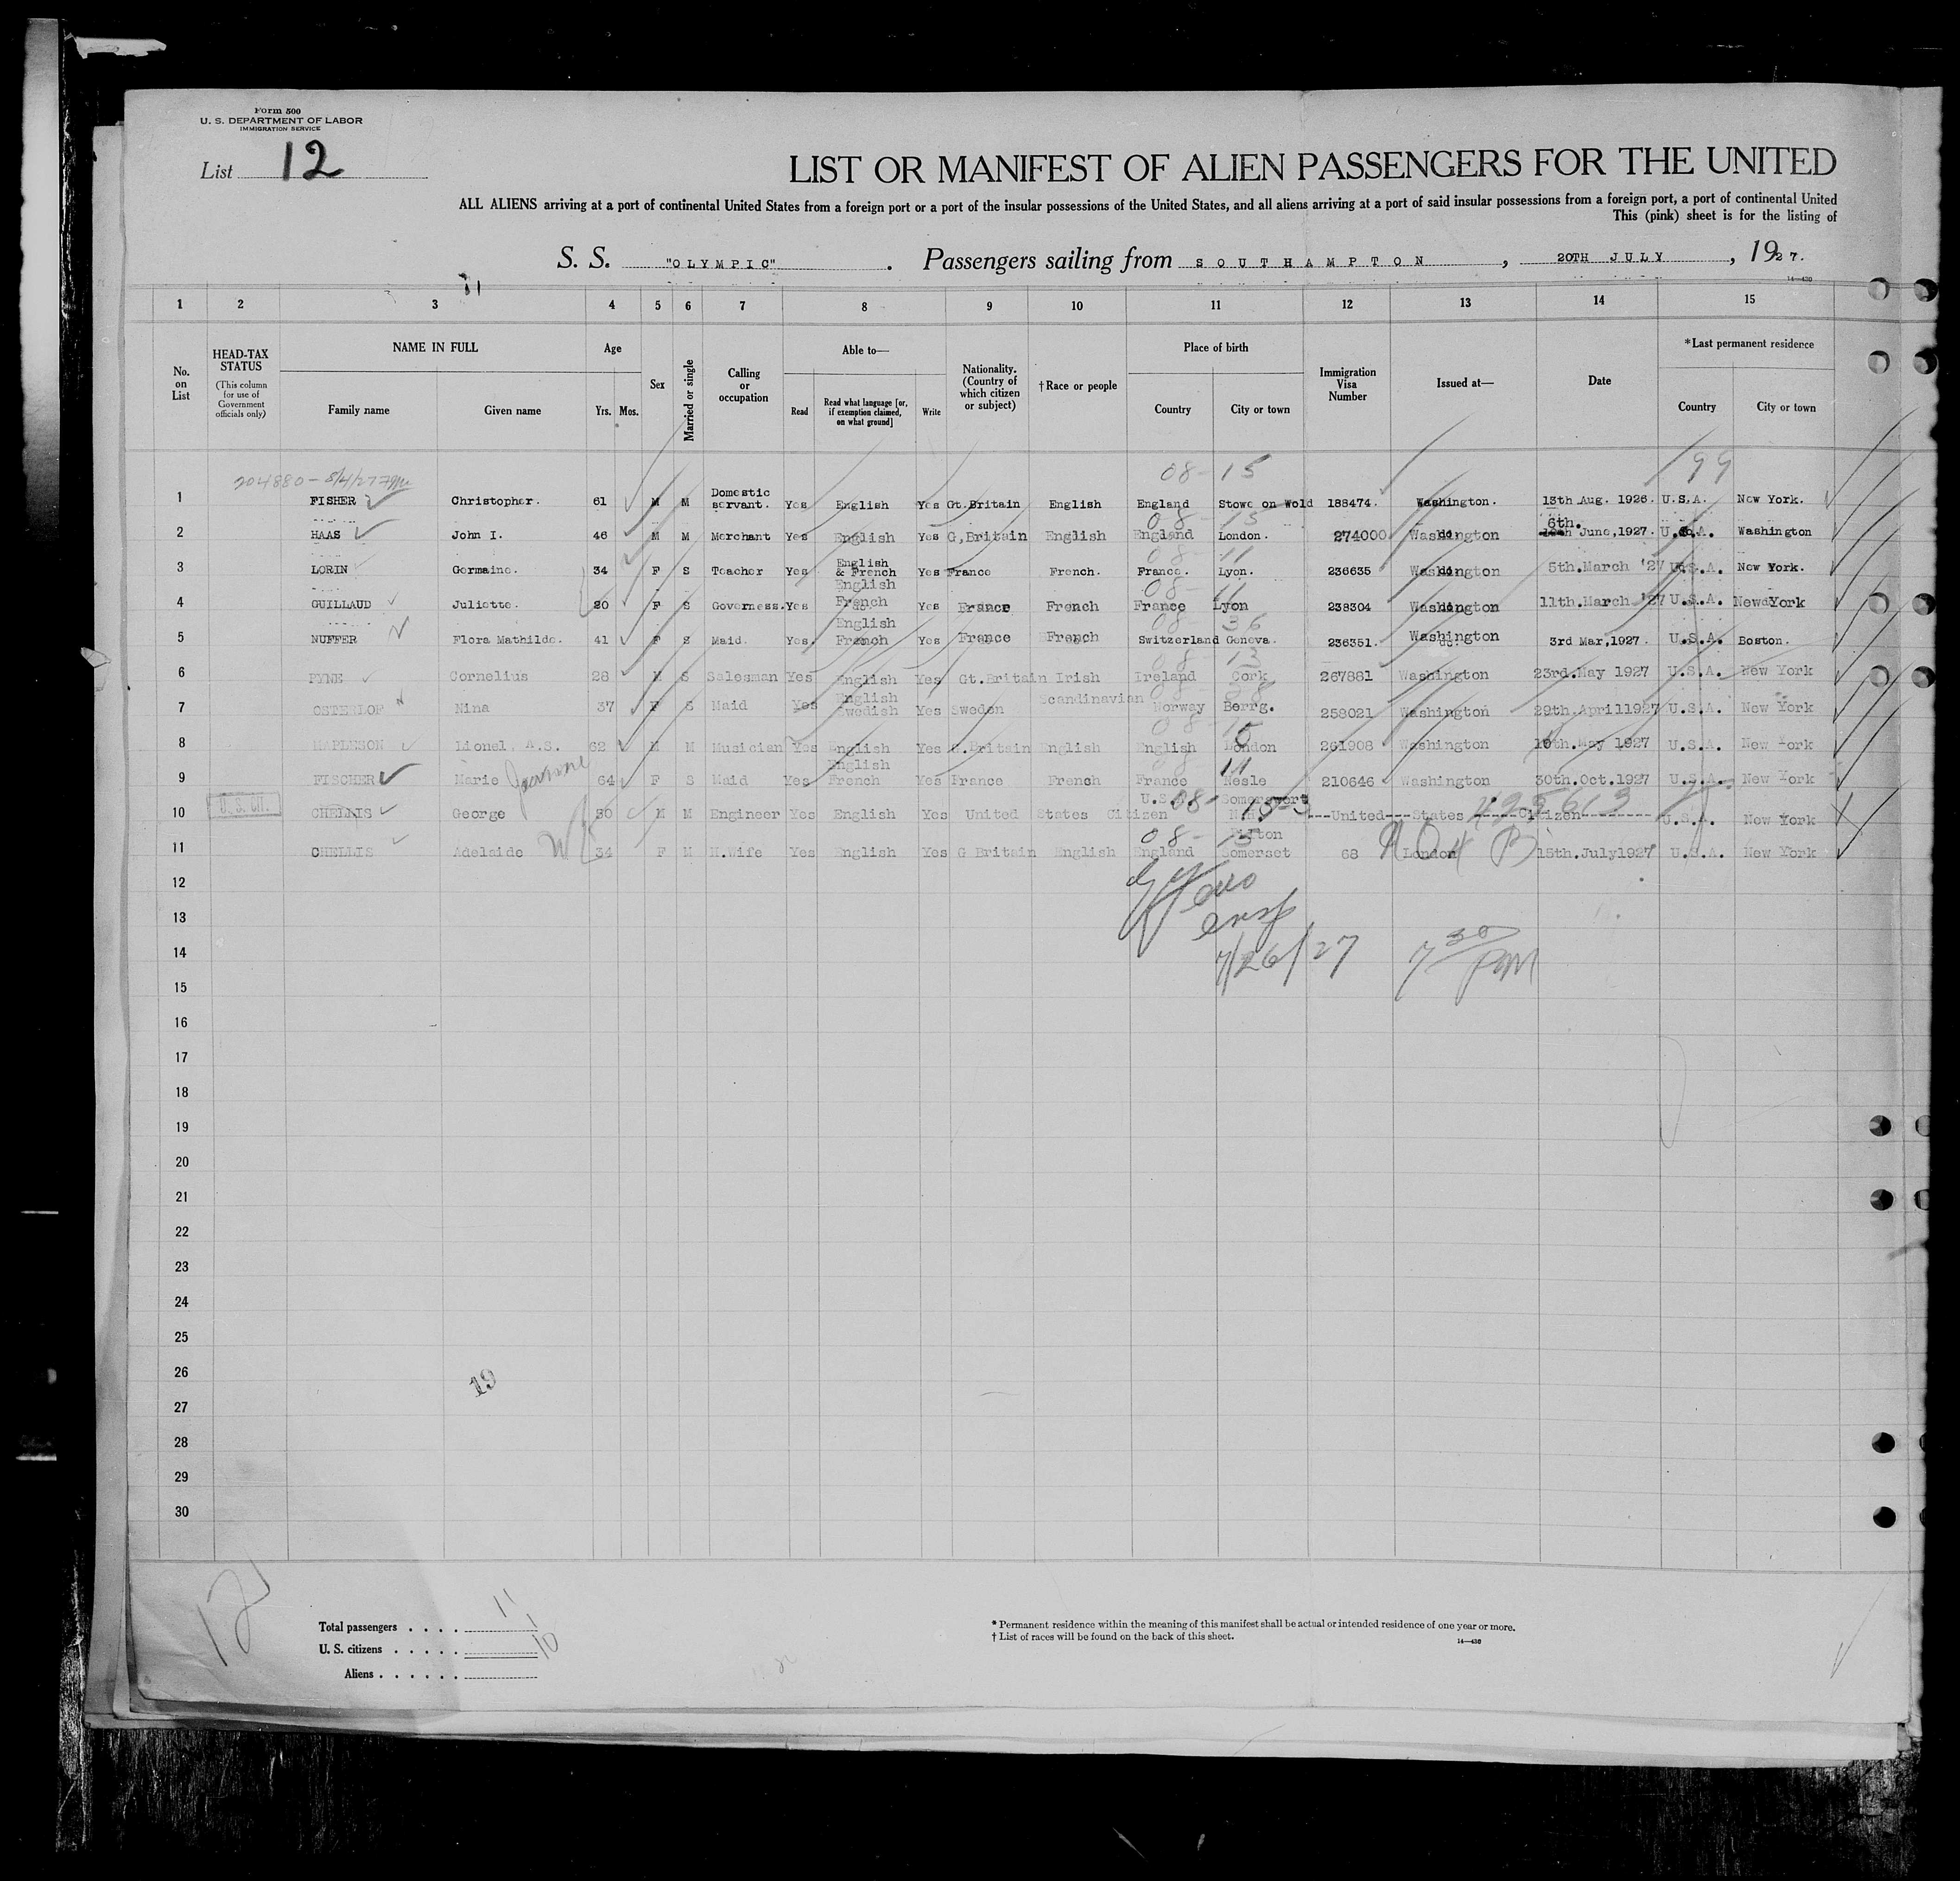 Form 500
U. S. DEPARTMENT OF LABOR
IMMIGRATION SERVICE
List 12
LIST OR MANIFEST OF ALIEN PASSENGERS FOR THE UNITED
ALL ALIENS arriving at a port of continental United States from a foreign port or a port of the insular possessions of the United States, and all aliens arriving at a port of said insular possessions from a foreign port, a port of continental United
This (pink) sheet is for the listing of
S. S. "OLYMPIC". Passengers sailing from SOUTHAMPTON, 20TH JULY, 1927.
14—430
1 2 3 4 5 6 7 8 9 10 11 12 13 14 15
No. on List
HEAD-TAX STATUS (This column for use of Government officials only)
NAME IN FULL Family name Given name
Age Yrs. Mos.
Sex
Married or single
Calling or occupation
Able to— Read Read what language [or, if exemption claimed, on what ground] Write
Nationality. (Country of which citizen or subject)
†Race or people
Place of birth Country City or town
Immigration Visa Number
Issued at—
Date
*Last permanent residence Country City or town
204880 - 8/4/27
08-15 99
1 FISHER Christopher. 61 M M Domestic servant. Yes English Yes Gt.Britain English England Stowe on Wold 188474. Washington. 13th Aug. 1926. U.S.A. New York.
08-15
2 HAAS John I. 46 M M Merchant Yes English Yes G,Britain English England London. 274000 Washington 6th. June,1927. U.S.A. Washington
08-11
3 LORIN Germaine. 34 F S Teacher Yes English & French Yes France French. France. Lyon. 236635 Washington 5th.March '27 U.S.A. New York.
08-11
4 GUILLAUD Juliette. 20 F S Governess. Yes English French Yes France French France Lyon 238304 Washington 11th.March '27 U.S.A. New York
08-36
5 NUFFER Flora Mathilde. 41 F S Maid. Yes. English French Yes France French Switzerland Geneva. 236351. Washington 3rd Mar,1927. U.S.A. Boston.
08-13
6 PYNE Cornelius 28 M S Salesman Yes English Yes Gt.Britain Irish Ireland Cork 267881 Washington 23rd.May 1927 U.S.A. New York
7 OSTERLOF Nina 37 F S Maid Yes English Swedish Yes Sweden Scandinavian Norway Berrg. 258021 Washington 29th.April1927 U.S.A. New York
08-15
8 MAPLESON Lionel. A.S. 62 M M Musician Yes English Yes G.Britain English English London 261908 Washington 10th.May 1927 U.S.A. New York
08-11
9 FISCHER Marie Jeanne 64 F S Maid Yes English French Yes France French France Nesle 210646 Washington 30th.Oct.1927 U.S.A. New York
10 U.S. CIT. CHELLIS George 30 M M Engineer Yes English Yes United States Citizen U.S.A. Somerswort N.H. ---United---States-----Citizen-------- U.S.A. New York
08-15
11 CHELLIS Adelaide 34 F M H.Wife Yes English Yes G Britain English England Somerset 68 London 15th.July1927 U.S.A. New York
12
13
14
7/26/27 7 30 PM
15
16
17
18
19
20
21
22
23
24
25
26
19
27
28
29
30
12
Total passengers 11
U. S. citizens 1
Aliens 10
* Permanent residence within the meaning of this manifest shall be actual or intended residence of one year or more.
† List of races will be found on the back of this sheet.
14—430